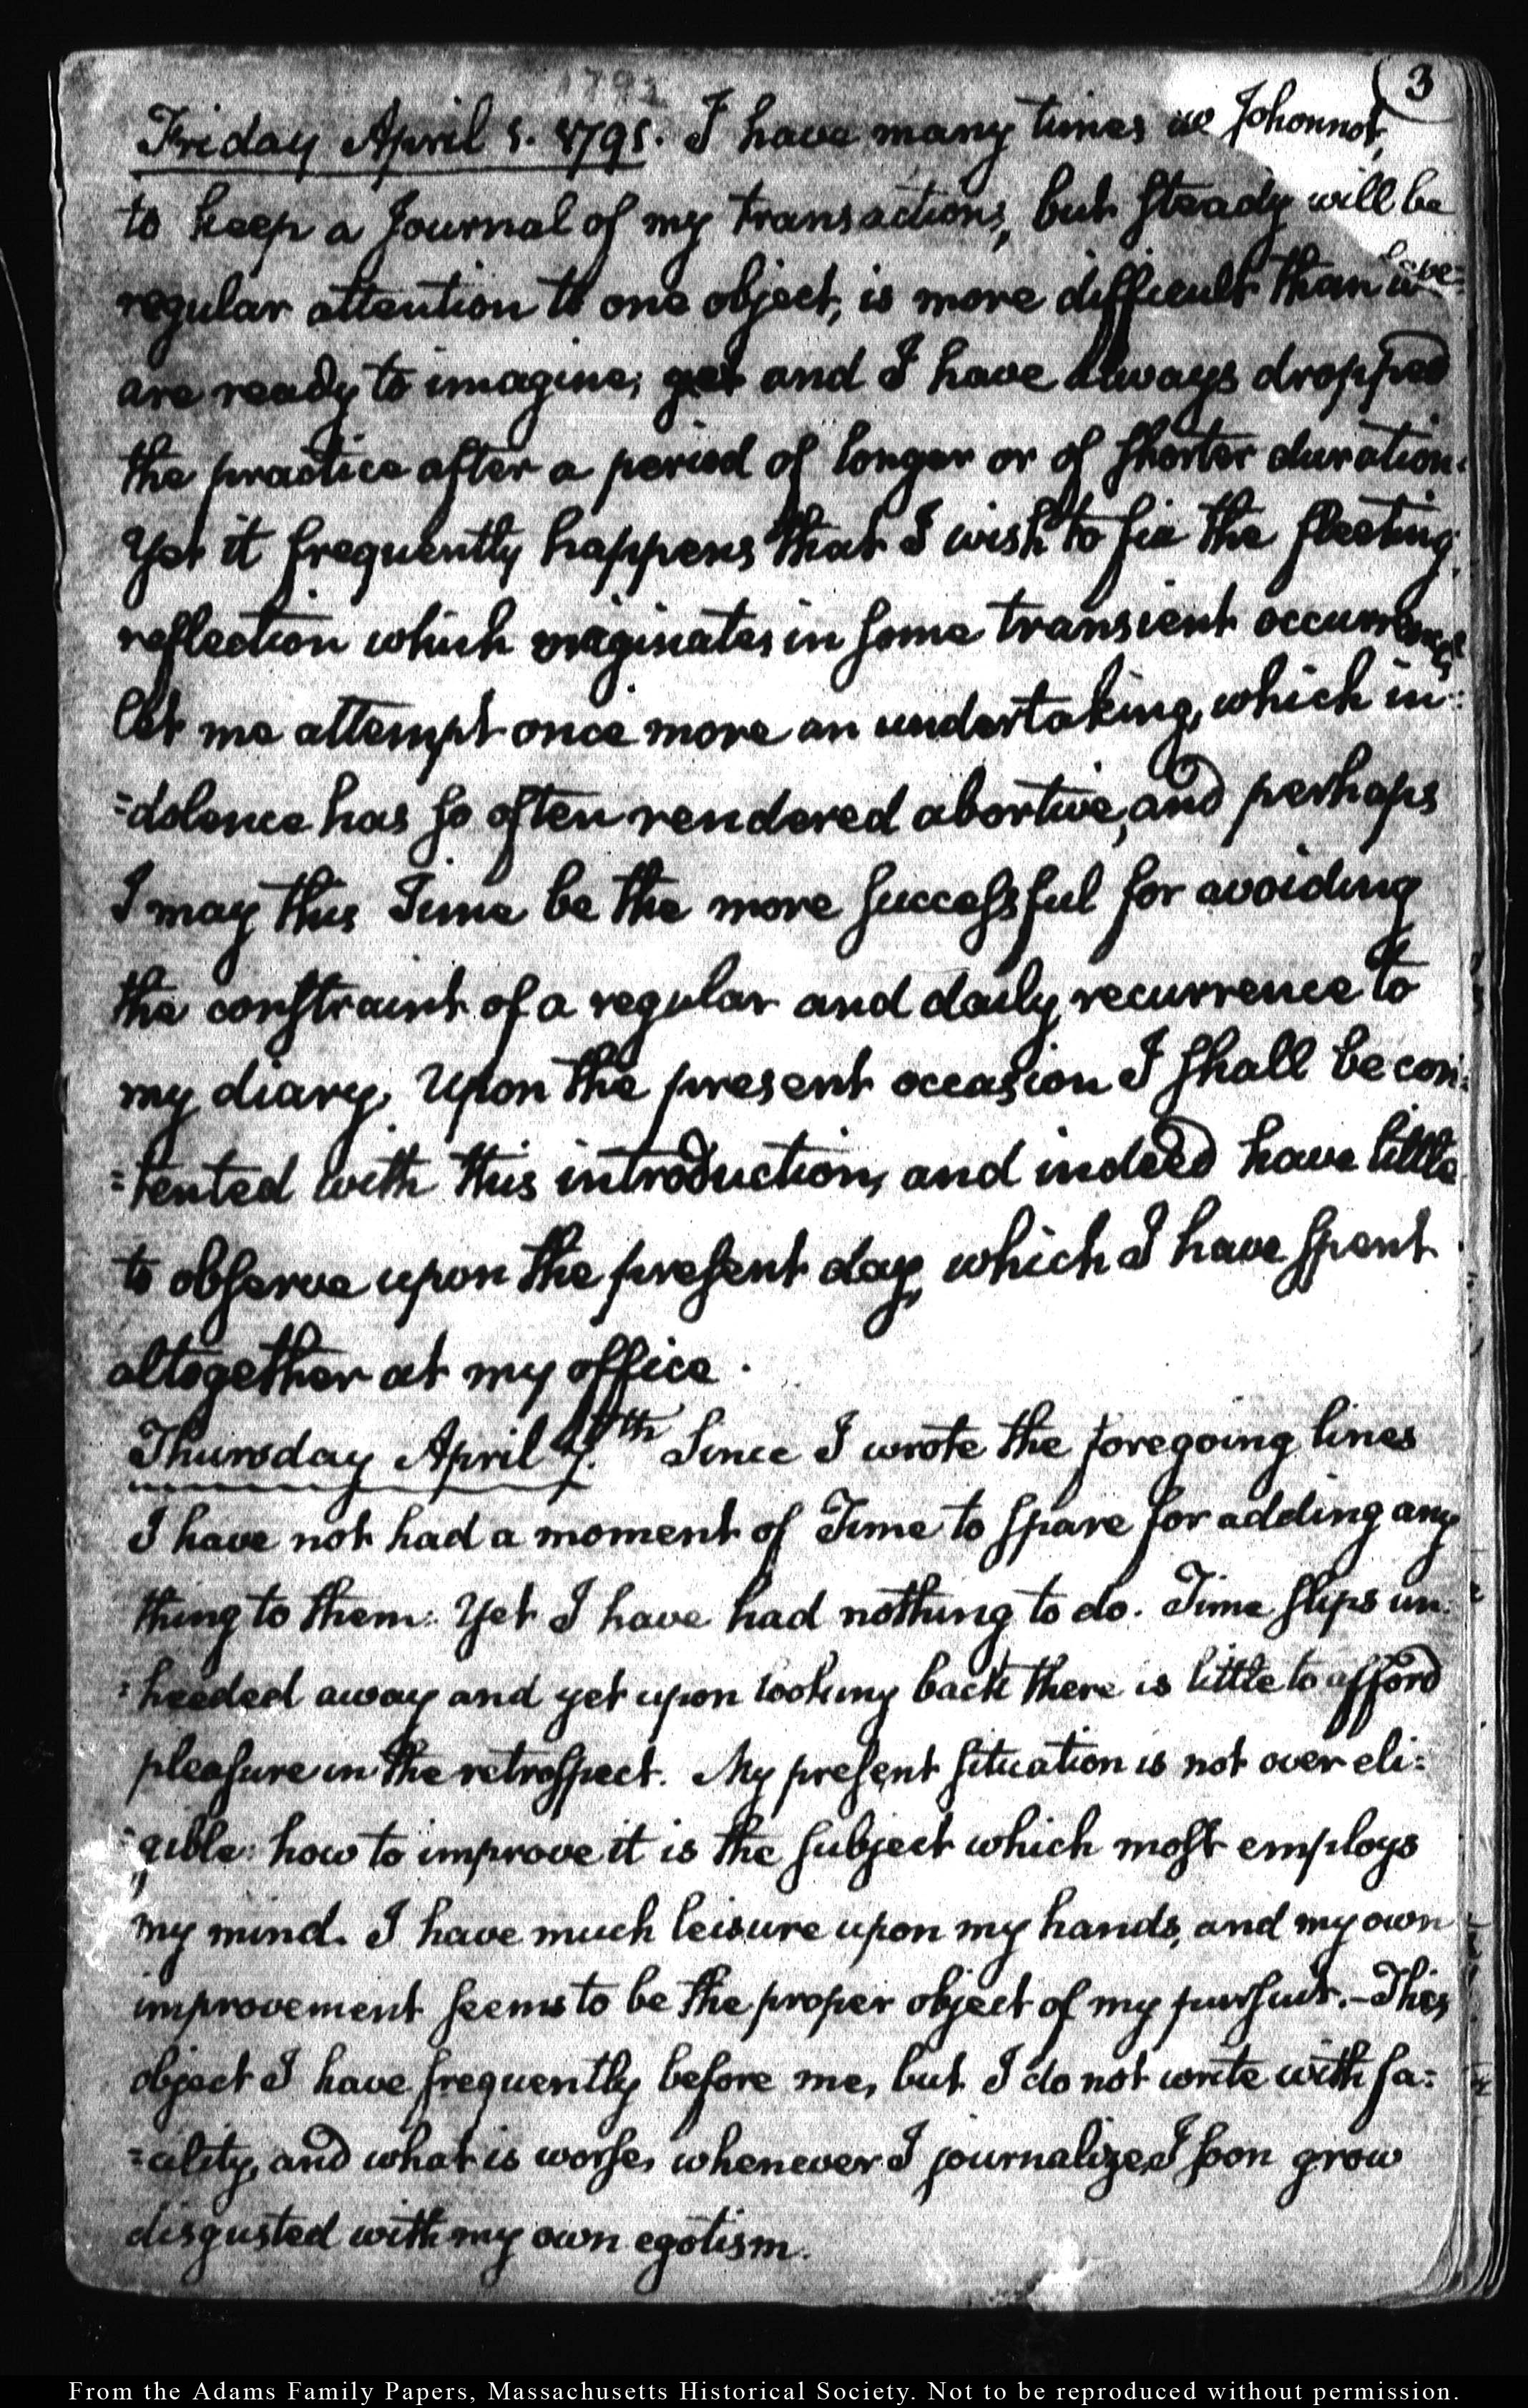 3
1792
Friday April 5. 1791. I have many times Johonnot,
to keep a Journal of my transactions, but steady will be
regular attention to one object, is more difficult than we
are ready to imagine; yet and I have always dropped
the practice after a period of longer or of shorter duration.
Yet it frequently happens that I wish to fix the fleeting
reflection which originates in some transient occurrence,
let me attempt once more an undertaking, which in=
=dolence has so often rendered abortive, and perhaps
I may this Time be the more successful for avoiding
the constraint of a regular and daily recurrence to
my diary. Upon the present occasion I shall be con=
=tented with this introduction, and indeed have little
to observe upon the present day, which I have spent
altogether at my office.
Thursday April 7.th Since I wrote the foregoing lines
I have not had a moment of Time to spare for adding any
thing to them: Yet I have had nothing to do. Time slips un=
=heeded away and yet upon looking back there is little to afford
pleasure in the retrospect. My present situation is not over eli=
=gible: how to improve it is the subject which most employs
my mind. I have much leisure upon my hands, and my own
improvement seems to be the proper object of my pursuit.—This
object I have frequently before me, but I do not write with fa=
=cility, and what is worse, whenever I journalize, I soon grow
disgusted with my own egotism.
From the Adams Family Papers, Massachusetts Historical Society. Not to be reproduced without permission.